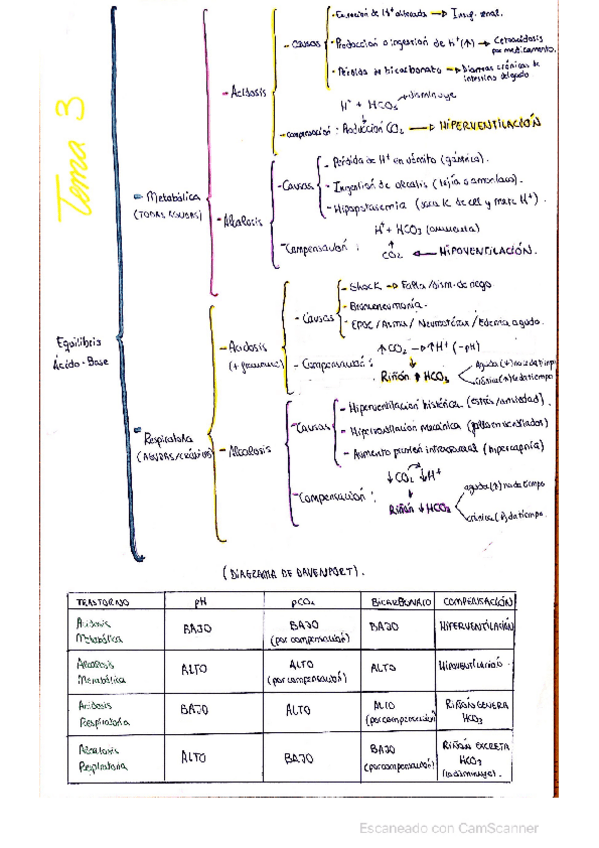 Tema 3
Equilibrio
Ácido-Base
- Metabólica
(TODAS AGUDAS)
- Acidosis
- Causas
- Excreción de H+ alterada → Insuf. renal.
- Producción o ingestión de H+ (↑) → Cetoacidosis
por medicamento.
- Pérdida de bicarbonato → Diarreas crónicas de
intestino delgado
H+ + HCO3 → disminuye
- compensación : Producción CO2 → HIPERVENTILACIÓN
- Alcalosis
- Causas
- Pérdida de H+ en vómito (gástrica).
- Ingestión de alcalis (lejía o amoniaco).
- Hipopotasemia (saca K de cel y mete H+).
H+ + HCO3 (aumenta)
- Compensación : CO2 ← HIPOVENTILACIÓN.
- Respiratoria
(AGUDAS/CRÓNICAS)
- Acidosis
(+ frecuente)
- Causas
- Shock → Falta/dism. de riego
- Bronconeumonía.
- EPOC / Asma / Neumotórax / Edema agudo.
↑ CO2 → ↑ H+ (-pH)
- Compensación :
Riñón ↑ HCO3
Aguda (+) no da tiempo
Crónica (↑) da tiempo
- Alcalosis
- Causas
- Hiperventilación histérica (estrés/ansiedad).
- Hiperventilación mecánica (falla en ventilados)
- Aumento presión intracraneal (hipercapnia)
↓ CO2 ↓ H+
- Compensación :
Riñón ↓ HCO3
aguda (↑) no da tiempo
crónica (↓) da tiempo.
(DIAGRAMA DE DAVENPORT).
TRASTORNO pH pCO2 BICARBONATO COMPENSACIÓN
Acidosis
Metabólica
BAJO
BAJO
(por compensación)
BAJO
HIPERVENTILACIÓN
Alcalosis
Metabólica
ALTO
ALTO
(por compensación)
ALTO
HIPOVENTILACIÓN
Acidosis
Respiratoria
BAJO
ALTO
ALTO
(por compensación)
RIÑÓN GENERA
HCO3
Alcalosis
Respiratoria
ALTO
BAJO
BAJO
(por compensación)
RIÑÓN EXCRETA
HCO3
(lo disminuye).
Escaneado con CamScanner